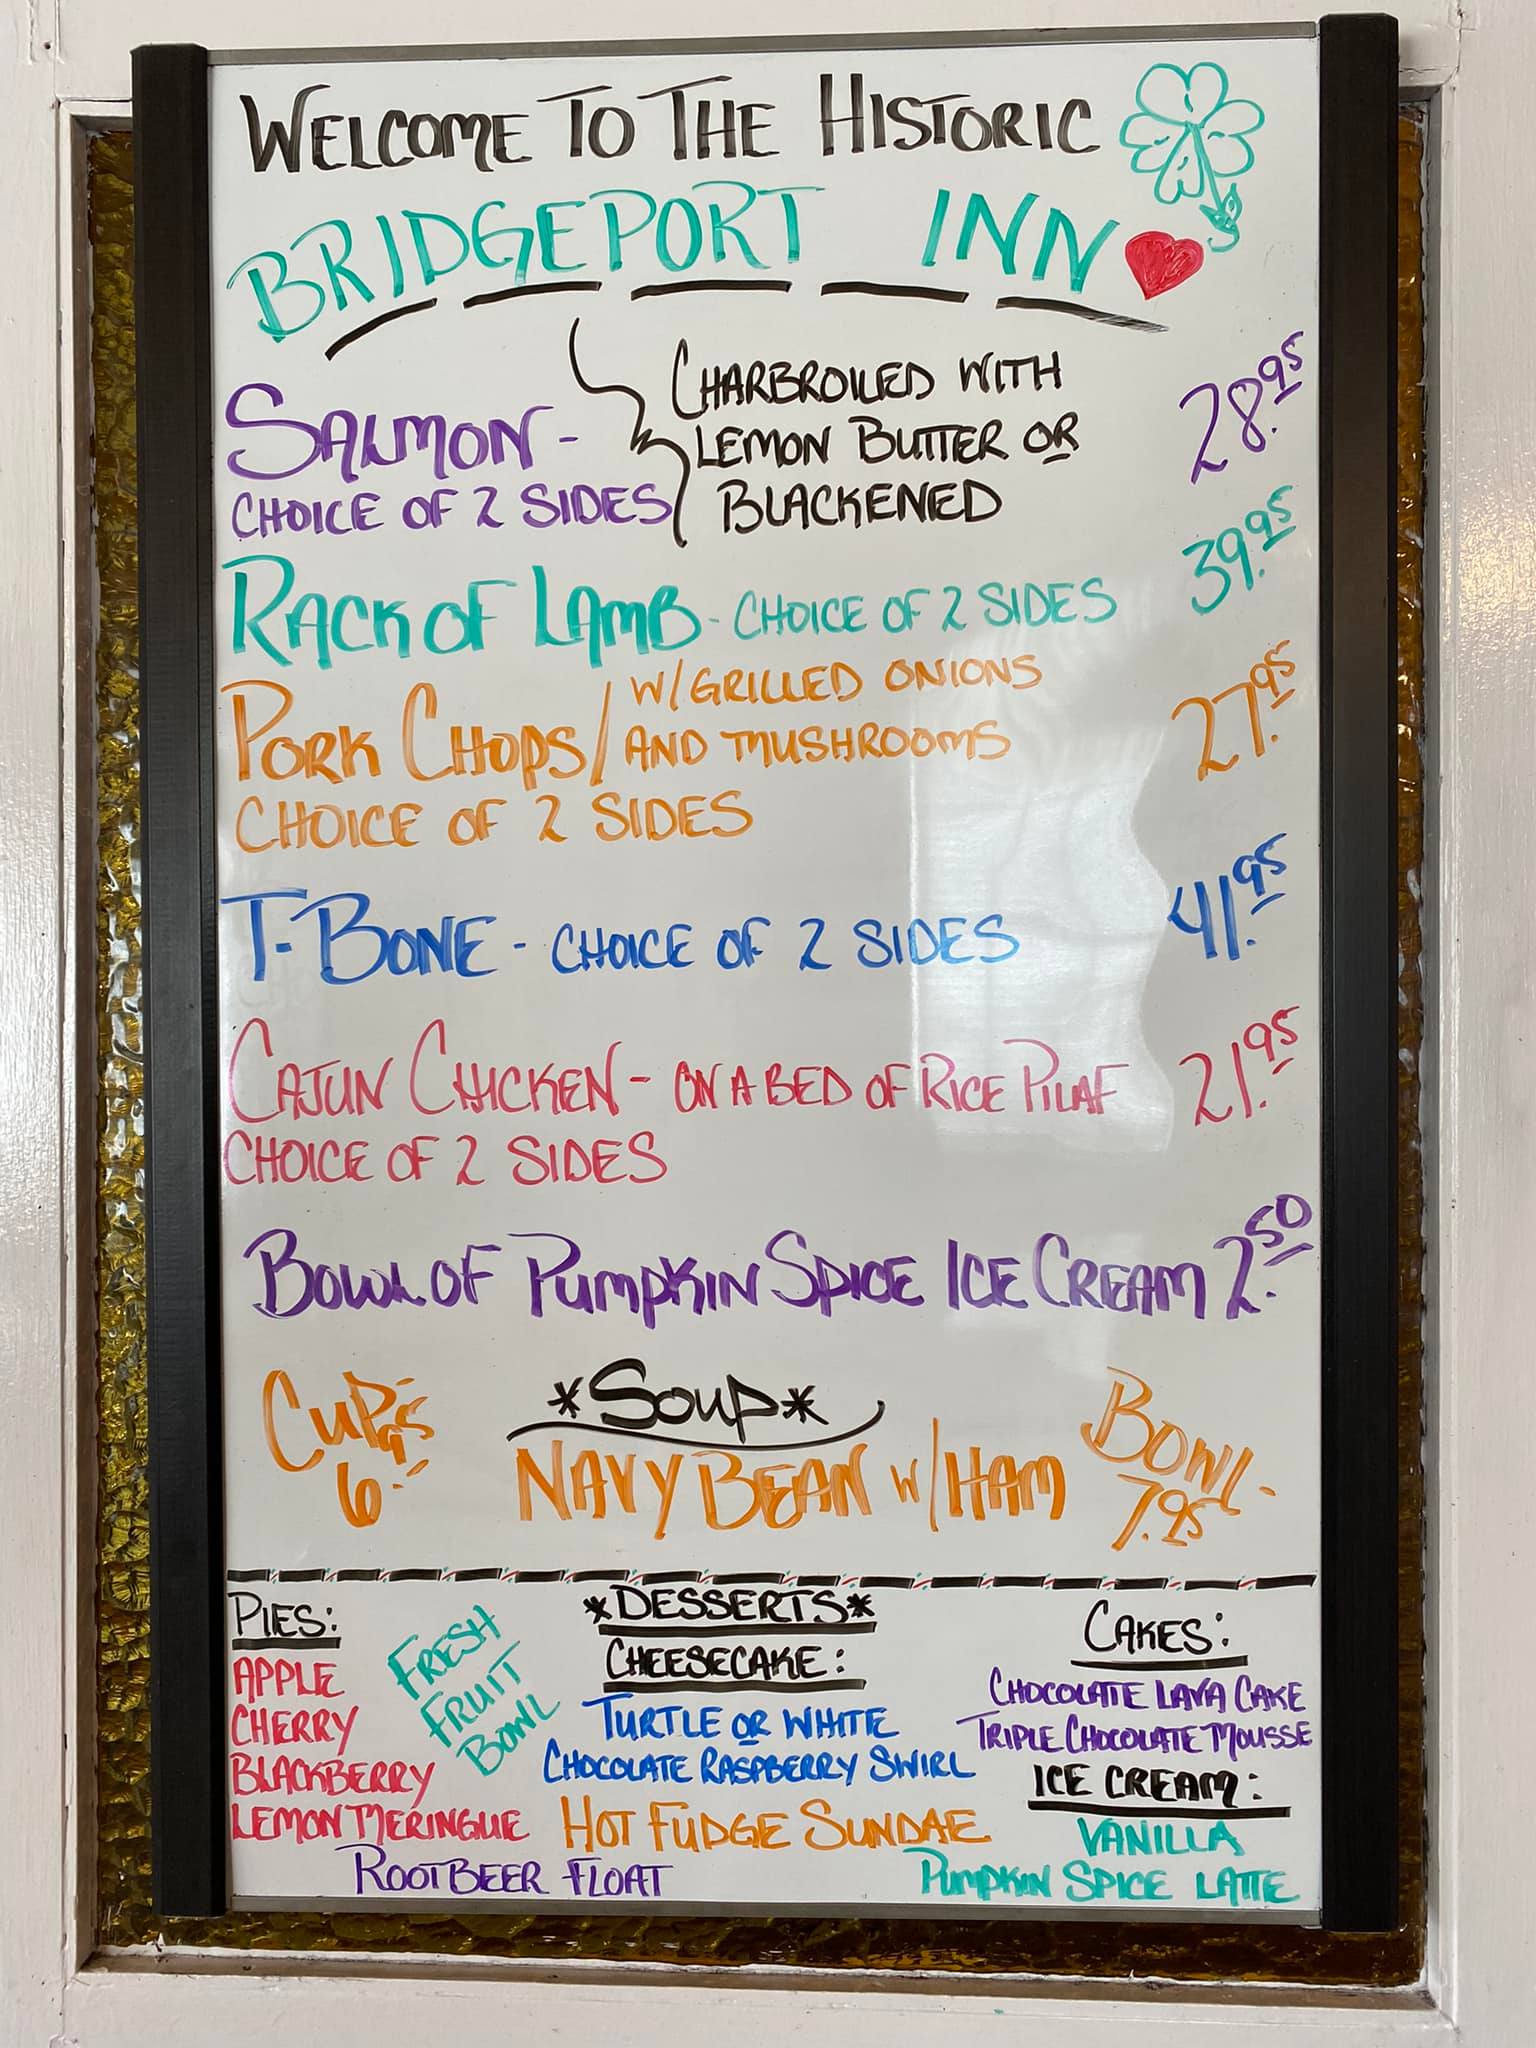 WELCOME TO THE HISTORIC
BRIDGEPORT INN
SALMON -
CHOICE OF 2 SIDES
CHARBROILED WITH
LEMON BUTTER OR
BLACKENED
28.95
RACK OF LAMB - CHOICE OF 2 SIDES 39.95
PORK CHOPS/ W/GRILLED ONIONS
AND MUSHROOMS
CHOICE OF 2 SIDES
27.95
T-BONE - CHOICE OF 2 SIDES 41.95
CAJUN CHICKEN - ON A BED OF RICE PILAF 21.95
CHOICE OF 2 SIDES
BOWL OF PUMPKIN SPICE ICE CREAM 2.50
*SOUP*
CUP-
6.95
NAVY BEAN W/HAM
BOWL-
7.95
PIES:
APPLE
CHERRY
BLACKBERRY
LEMON MERINGUE
FRESH
FRUIT
BOWL
ROOTBEER FLOAT
*DESSERTS*
CHEESECAKE:
TURTLE OR WHITE
CHOCOLATE RASPBERRY SWIRL
HOT FUDGE SUNDAE
CAKES:
CHOCOLATE LAVA CAKE
TRIPLE CHOCOLATE MOUSSE
ICE CREAM:
VANILLA
PUMPKIN SPICE LATTE